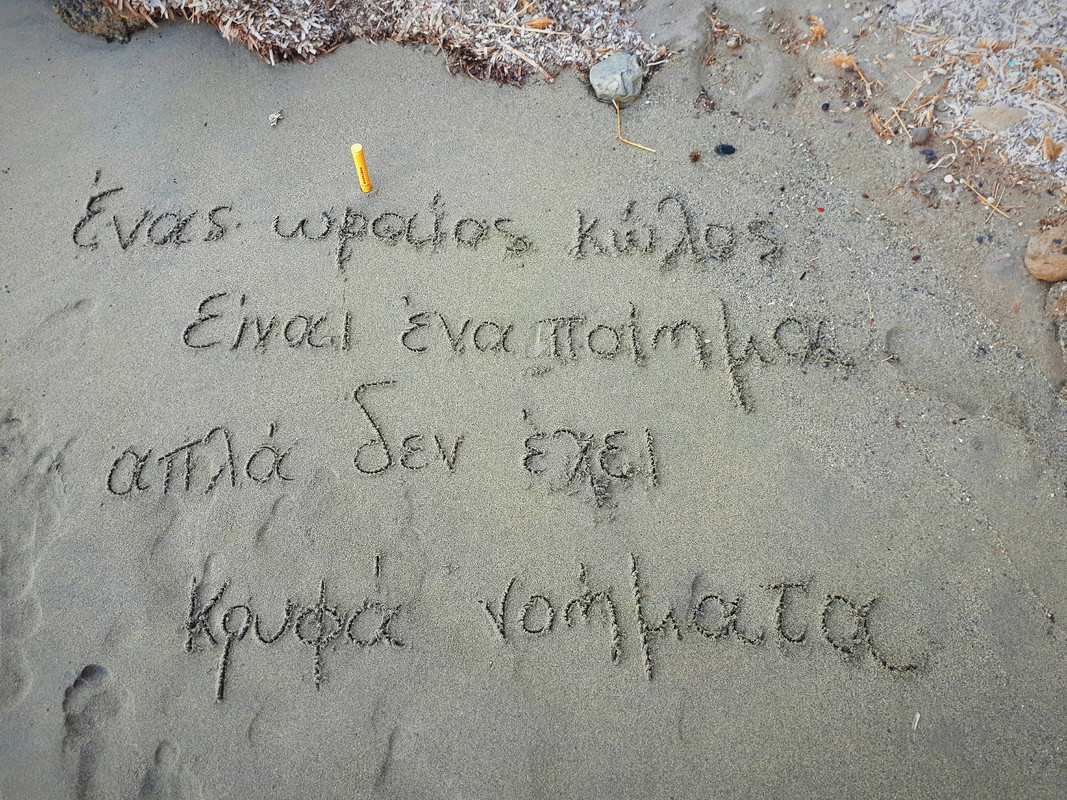 ένας ωραίος κώλος
είναι ένα ποίημα
απλά δεν έχει
κρυφά νοήματα